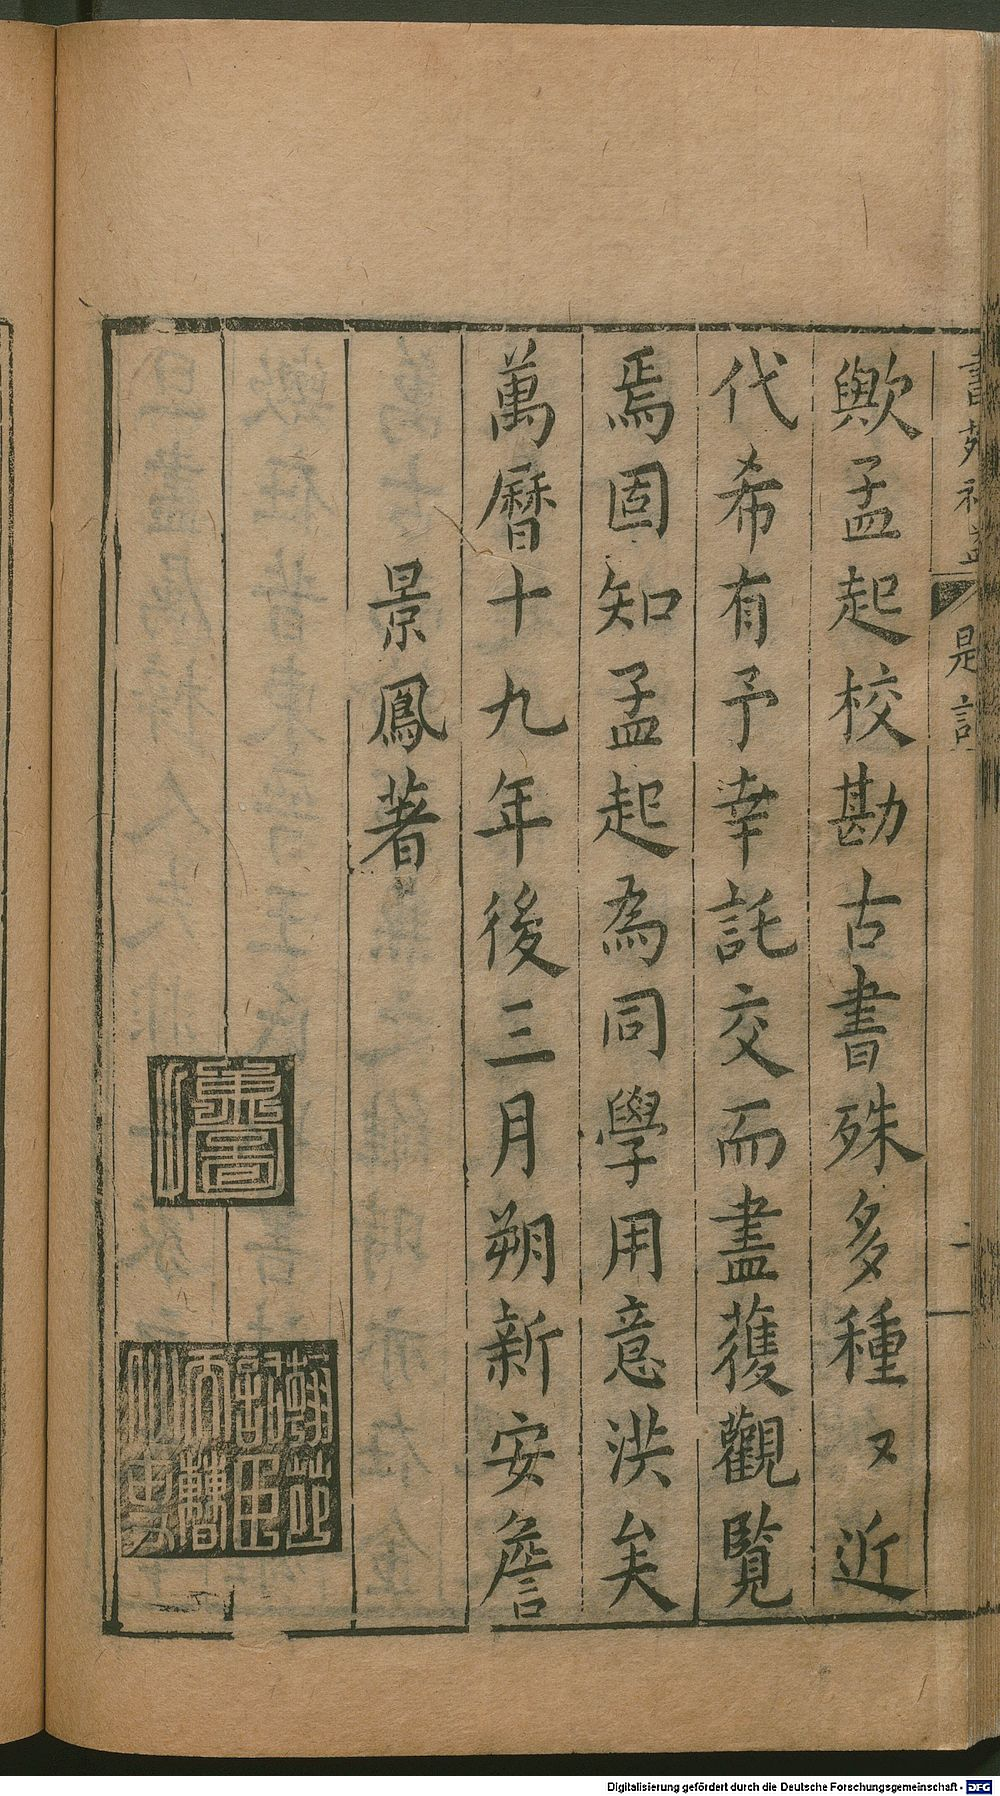 書苑補益 是誤
歟孟起校勘古書殊多種〻近
代希有予幸託交而盡獲觀覽
焉固知孟起為同學用意洪矣
萬曆十九年後三月朔新安詹
景鳳著
Digitalisierung gefördert durch die Deutsche Forschungsgemeinschaft - DFG